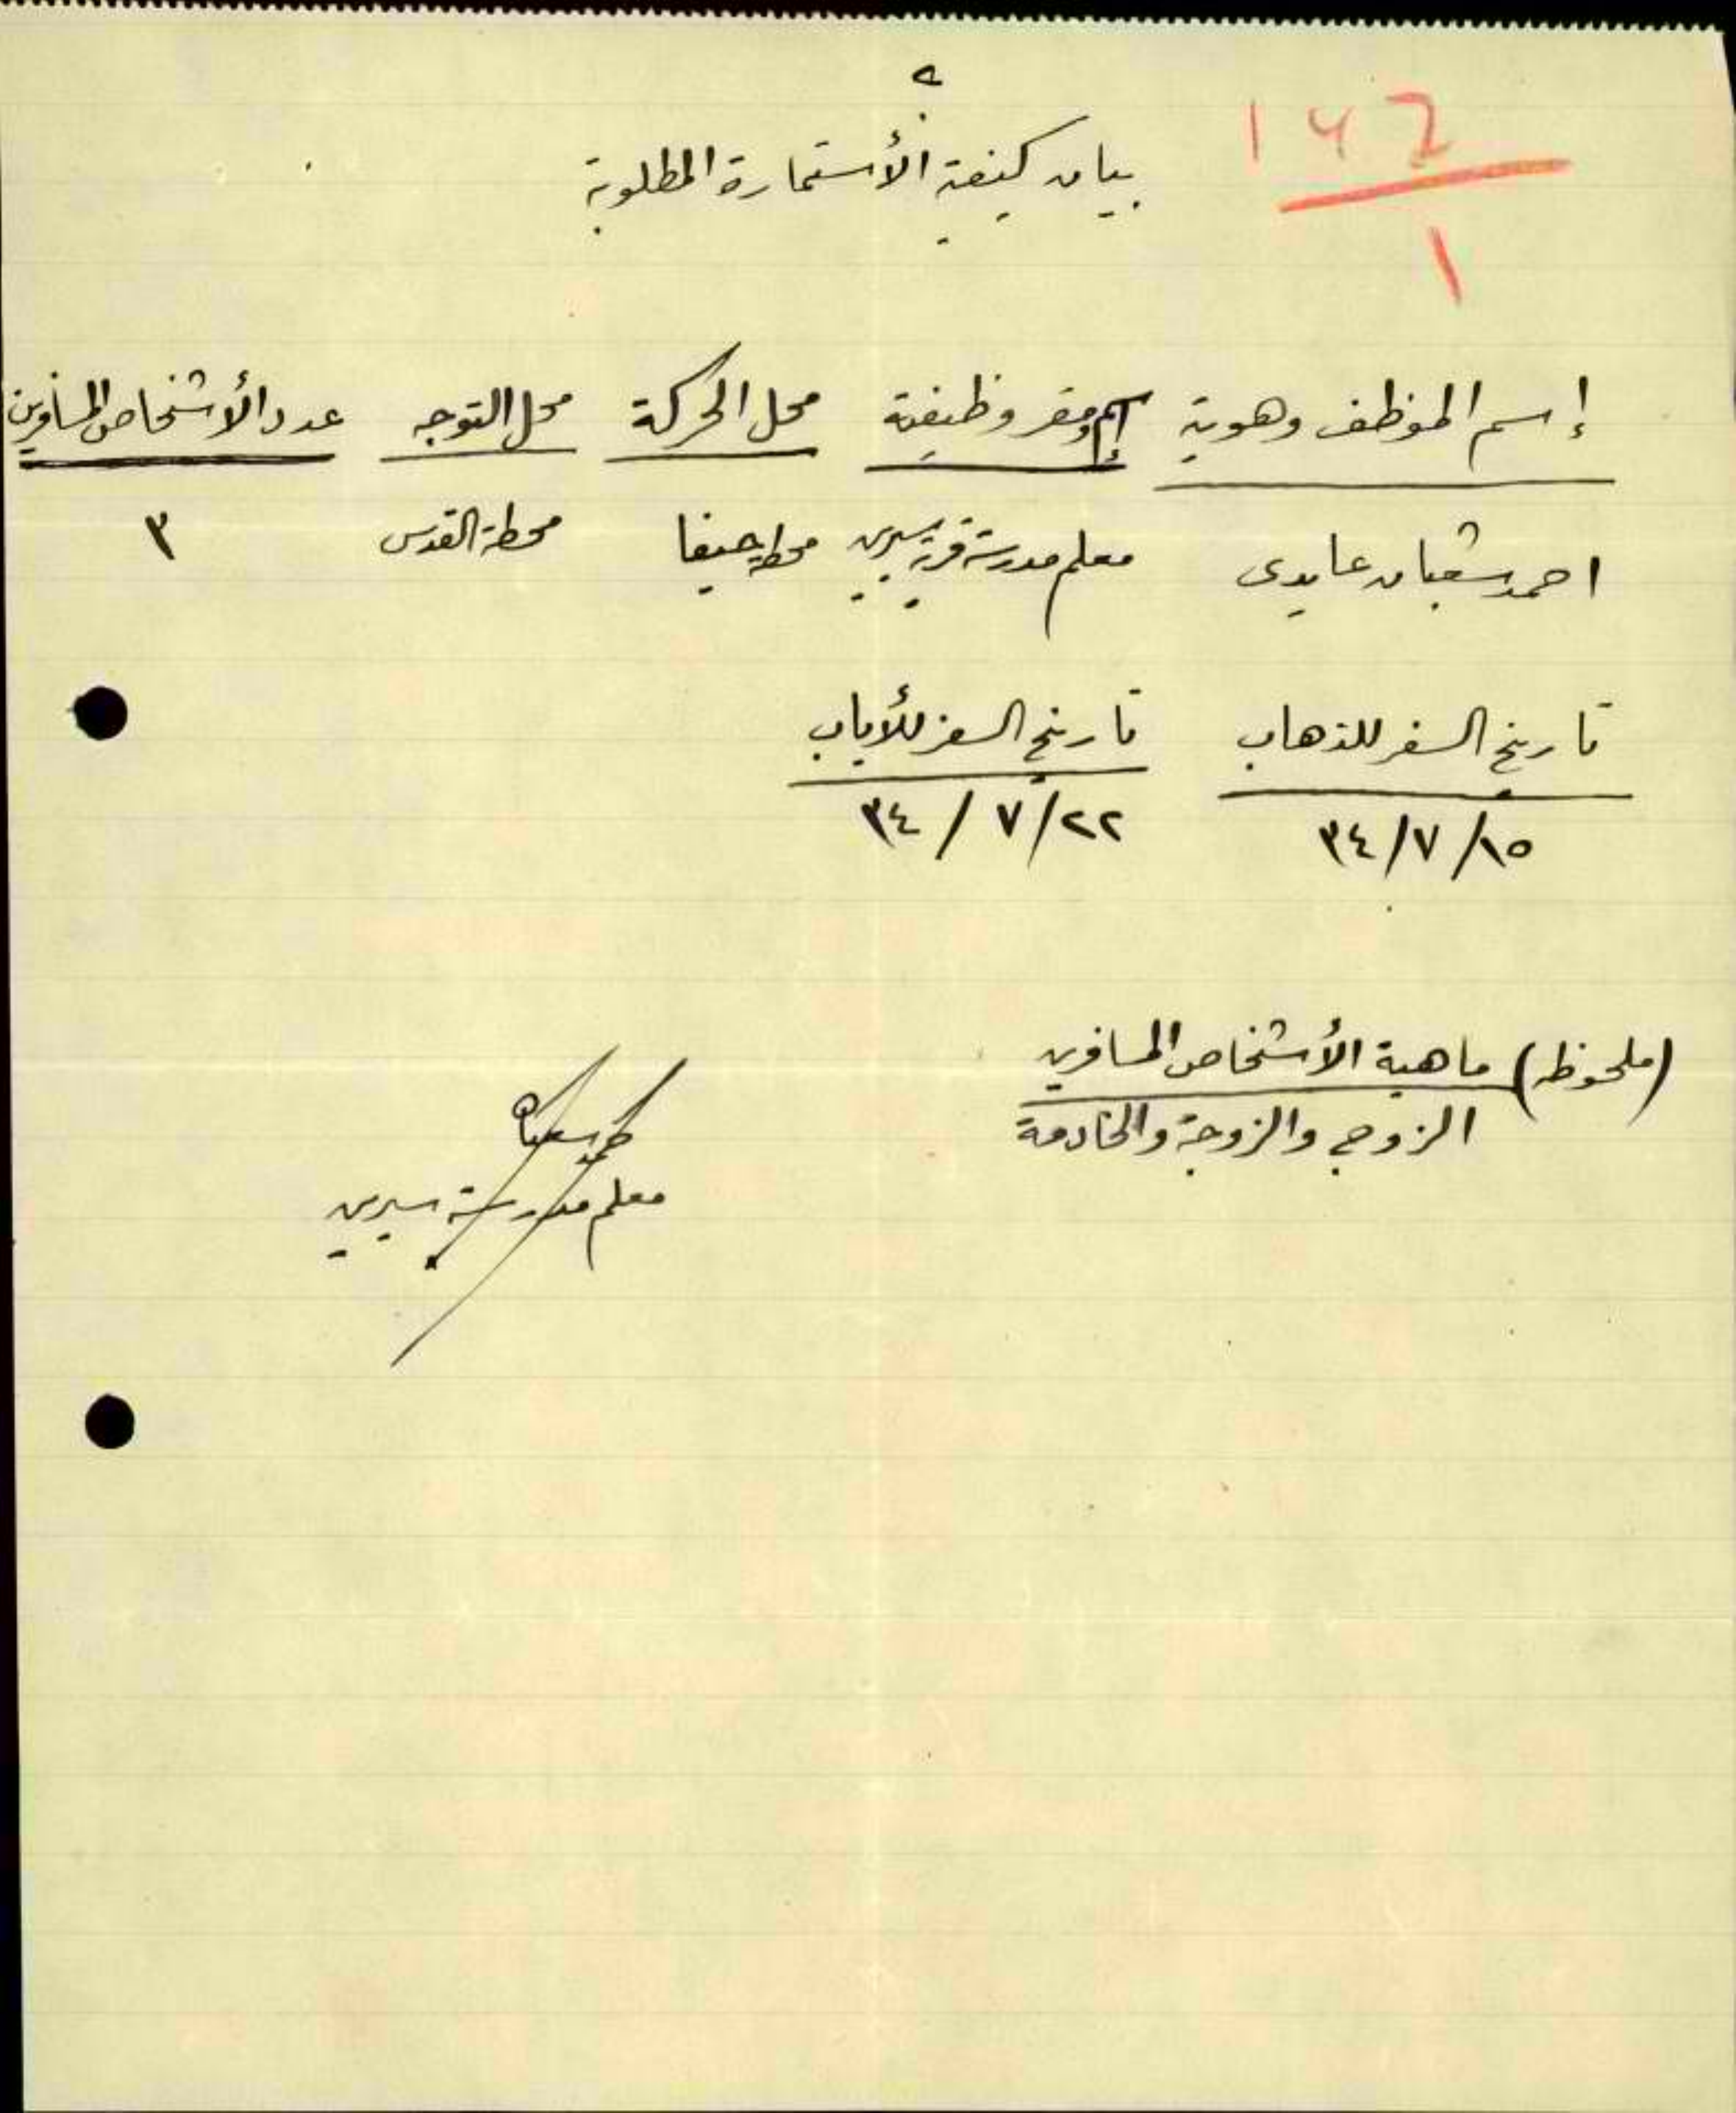 ٢
بيان كيفية الأستمارة المطلوبة
إسم الموظف وهويته
إسم ومقر وظيفته
محل الحركة
محل التوجه
عدد الأشخاص المسافرين
احمد شعبان عايدى
معلم مدرسة قرية سيرين
محطة حيفا
محطة القدس
٣
تاريخ السفر للذهاب
تاريخ السفر للأياب
١٥/ ٧/ ٣٤
٢٢/ ٧ / ٣٤
(ملحوظه) ماهية الأشخاص المسافرين
الزوج والزوجة والخادمة
احمد شعبان
معلم مدرسة سيرين